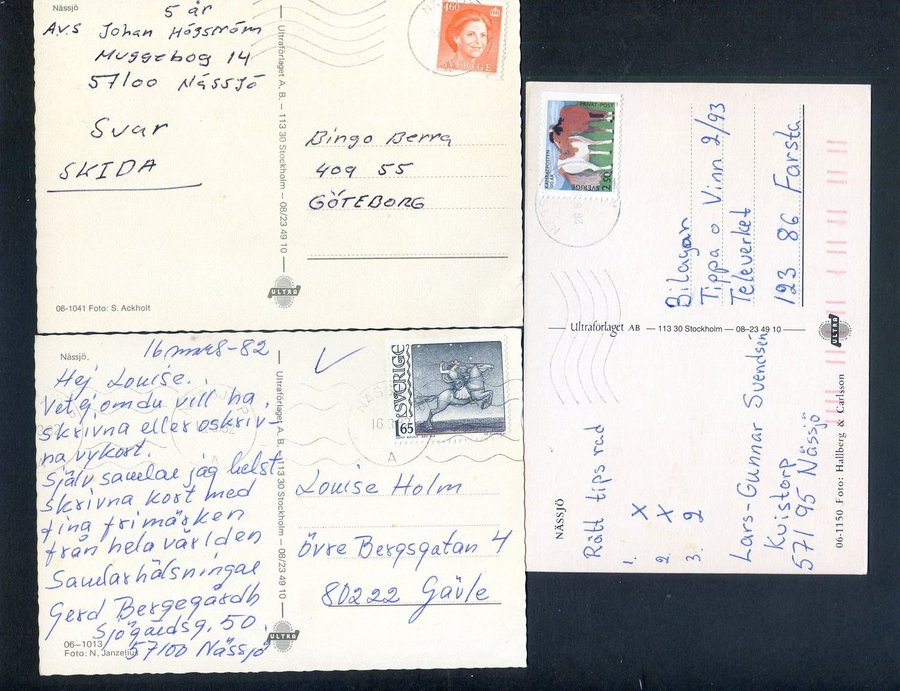 Nässjö
5 år
Av.s Johan Högström
Muggebog 14
57100 Nässjö
Svar
SKIDA
Ultraförlaget A. B. – 113 30 Stockholm – 08/23 49 10
460
SVERIGE
Bingo Berra
409 55
GÖTEBORG
ULTRA
06-1041 Foto: S. Ackholt
Nässjö.
16 mars-82
Hej Louise.
Vet ej om du vill ha
skrivna eller oskriv-
na vykort.
Själv samlar jag helst
skrivna kort med
fina frimärken
från hela världen
Samlarhälsningar
Gerd Bergegårdh
Sjögårdsg. 50
57100 Nässjö
06-1013
Foto: N. Janzelius
Ultraförlaget A. B. – 113 30 Stockholm – 08/23 49 10
ULTRA
SVERIGE
1.65
A
Louise Holm
Övre Bergsgatan 4
80222 Gävle
PRIVAT-POST
SVERIGE
2.50
Bilagan
Tippa o Vinn 2/93
Televerket
123 86 Farsta
Ultraförlaget AB — 113 30 Stockholm — 08–23 49 10
ULTRA
NÄSSJÖ
Rätt tips rad
1. X
2 X
3. 2
Lars-Gunnar Svendsén
Kvistorp
571 95 Nässjö
06-1150 Foto: Hallberg & Carlsson